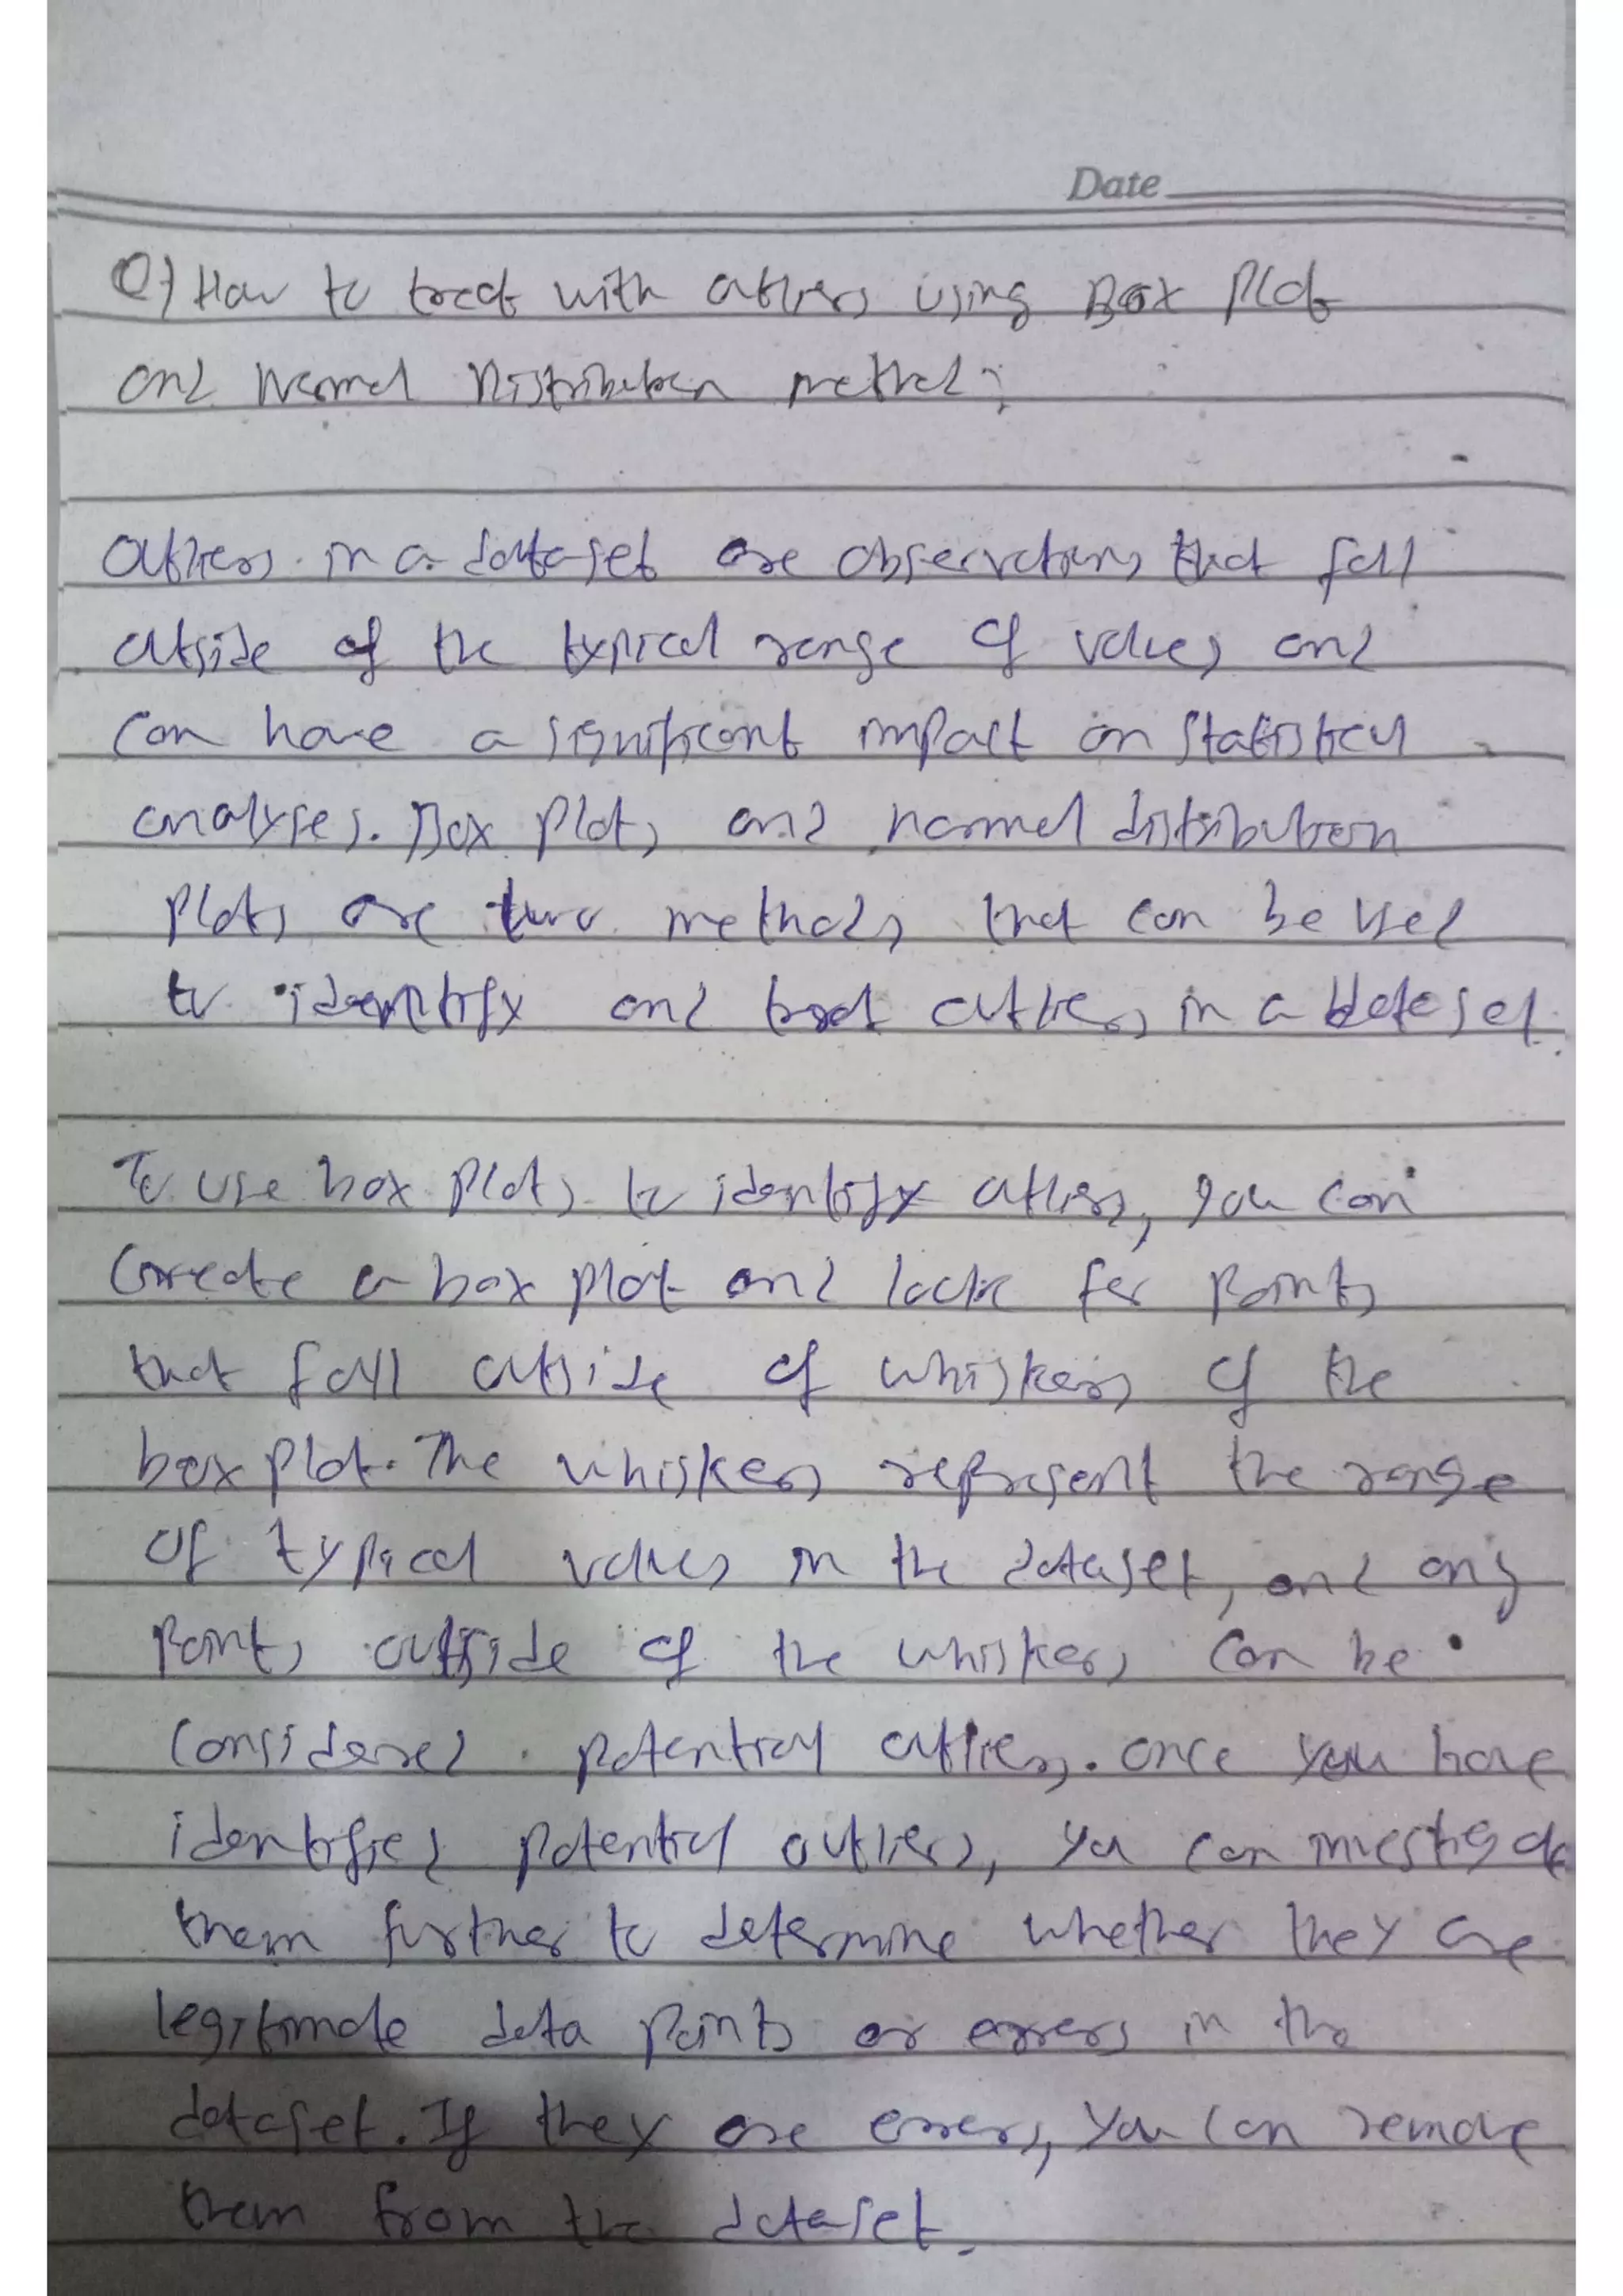 Date
Q) How to treat with outliers using Box Plot
and Normal Distribution method?
Outliers in a dataset are observations that fall
outside of the typical range of values and
can have a significant impact on statistical
analyses. Box plots and normal distribution
plots are two methods that can be used
to identify and treat outliers in a dataset.
To use box plots to identify outliers, you can
create a box plot and look for points
that fall outside of whiskers of the
box plot. The whiskers represent the range
of typical values in the dataset, and any
points outside of the whiskers can be
considered potential outliers. once you have
identified potential outliers, you can investigate
them further to determine whether they are
legitimate data points or errors in the
dataset. If they are errors, you can remove
them from the dataset.